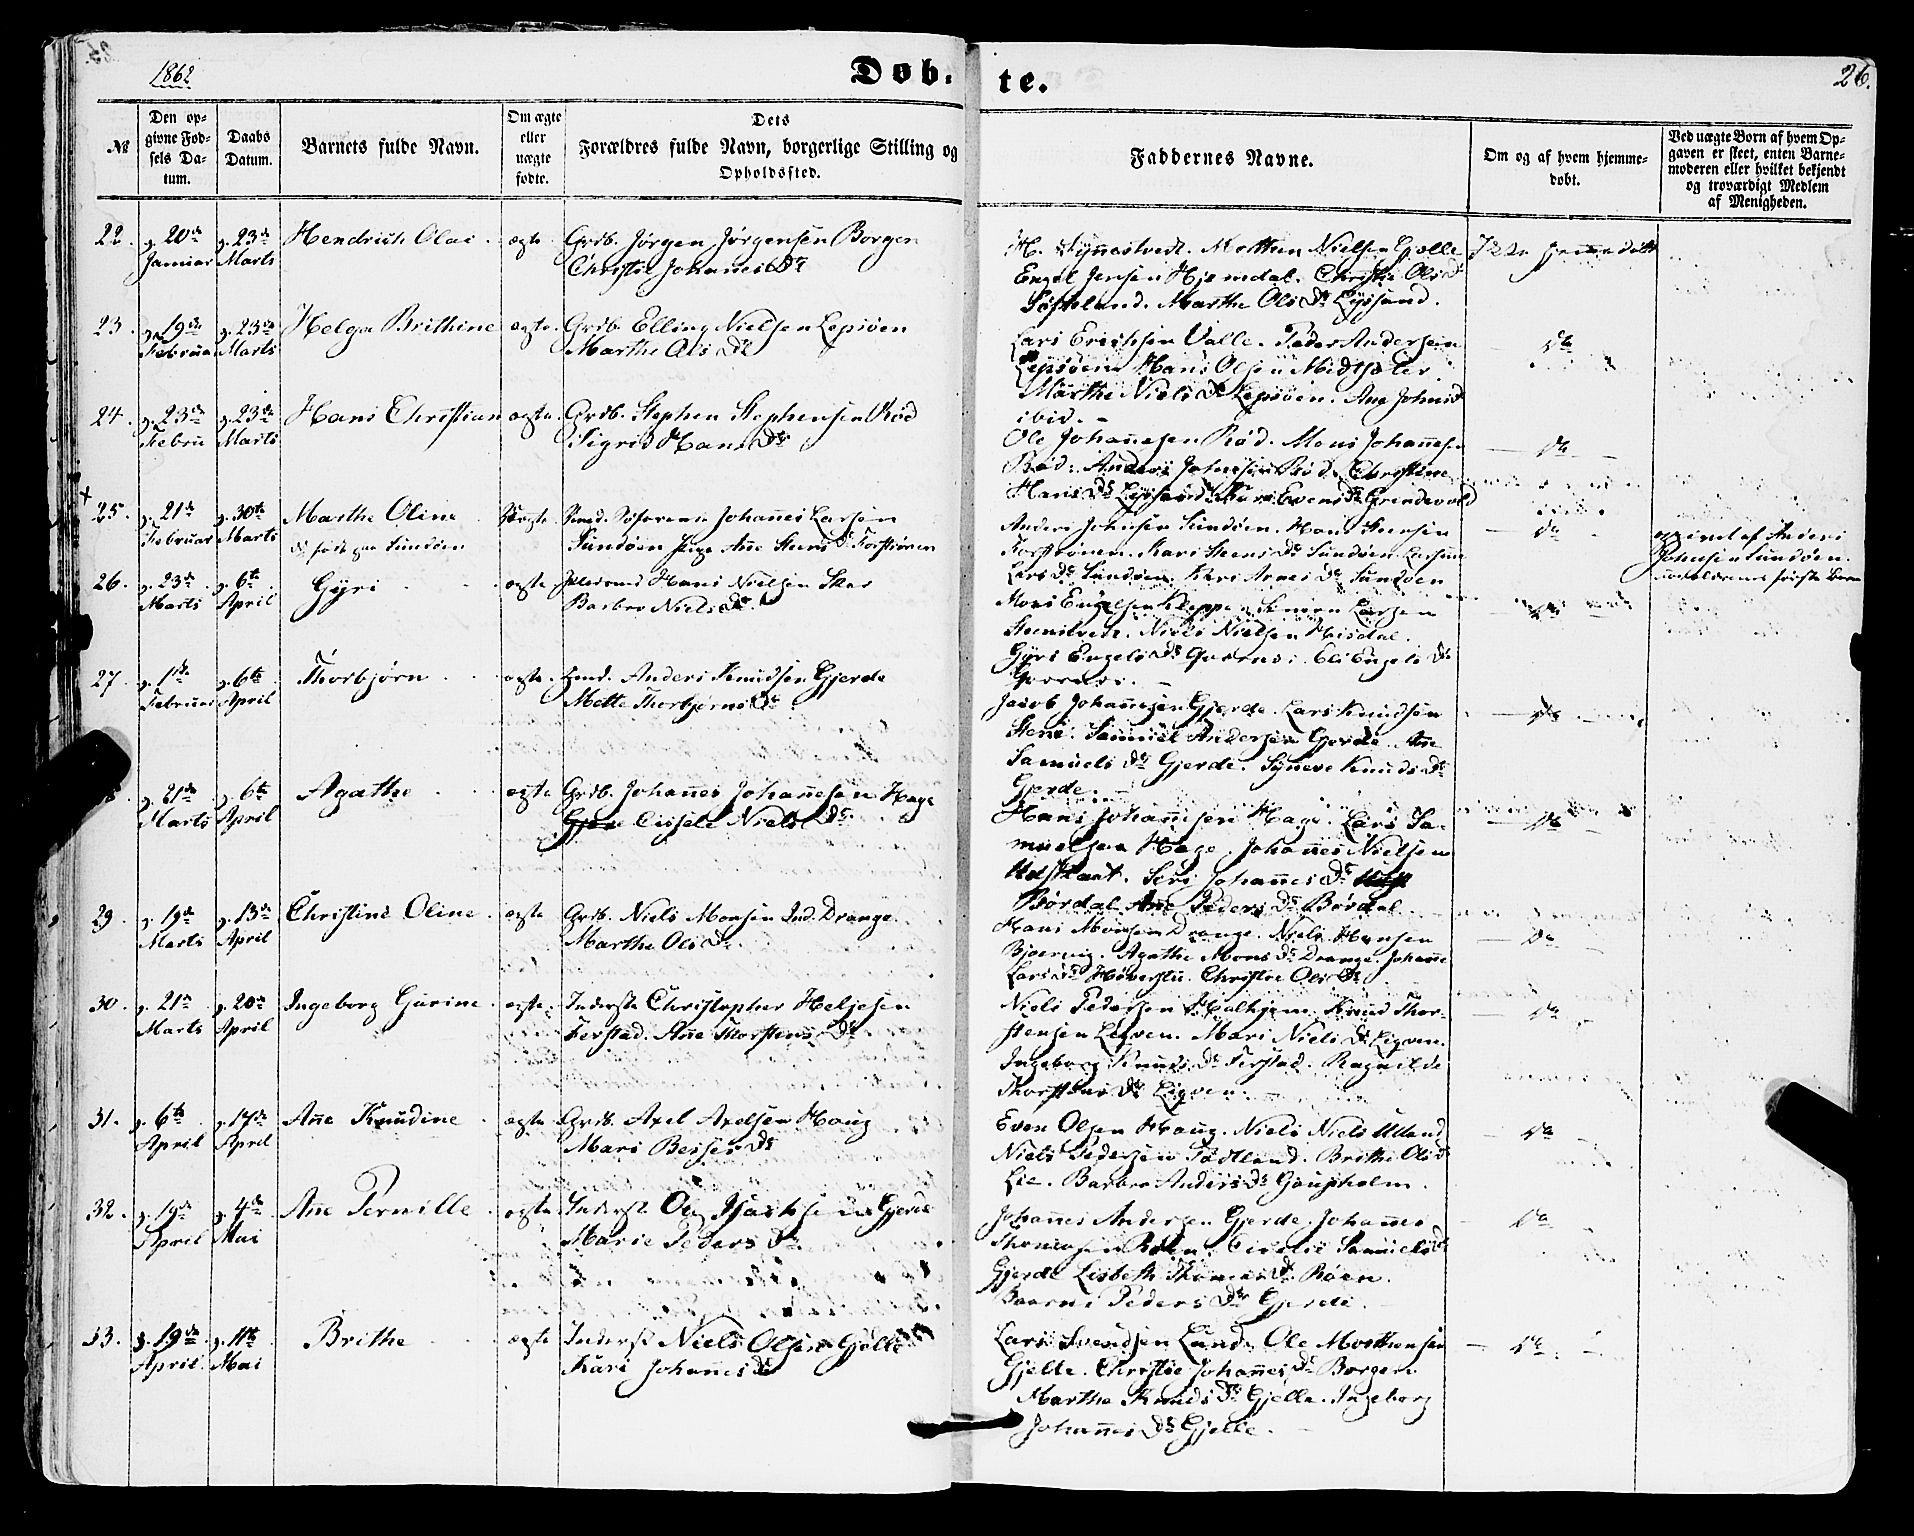 1862
Døb-
te.
26.
№
Den op-
givne Fød-
sels Da-
tum.
Daabs
Datum.
Barnets fulde Navn.
Om ægte
eller
uægte
fødte.
Dets
Forældres fulde Navn, borgerlige Stilling og
Opholdssted.
Faddernes Navne.
Om og af hvem hjemme-
døbt.
Ved uægte Børn af hvem Op-
gaven er skeet, enten Barne-
moderen eller hvilket bekjendt
og troværdigt Medlem
af Menigheden.
22. 20de Januar 23de Marts Hendrich Olai ægte Grdb. Jørgen Jørgensen Borgen
Christie Johannes Dr
Morthen Nielsen Gjelle
Engel Jensen Hjemdal. Christie Ols Dr
Marthe Ols Dr Lyssand.
Ikke hjemmedøbt
23. 19de Februar 23de Marts Helga Brithine ægte Grdb. Elling Nielsen Lepsøen
Marthe Ols Dr
Lars Erichsen Valle. Peder Andersen
Lepsøen. Hans Olsen Midtsæter
Marthe Niels Dr Lepsøen. Ane Johns Dr
ibid.
do
24. 23de Februar 23de Marts Hans Christian ægte Grdb. Stephen Stephensen Røe
Sigrid Hans Dr
Ole Johannesen Rød. Mons Johannesen
Rød. Anders Johnsen Rød. Christine
Hans Dr Lyssand. Evens Dr Grindevold
do
25. 21de Februar 30te Marts Marthe Oline Uægte Johannes Larsen
Sundøen Pige Ane Steens Dr
født paa Sundøen
Anders Johnsen Sundøen. Hans Steensen
Kari Steens Dr Sundøen.
Lars Dr Sundøen. Kari Arnes Dr Sundøen
do
af Anders
Johnsen Sundøen
Forældrenes første Barn
26. 23de Marts 6te April Gyri ægte Hans Nielsen
Barbro Niels Dr
Mons Engelsen Kleppe. Simon Larsen
Niels Nielsen Hisdal.
Gyri Engels Dr. Eli Engels Dr
do
27. 1ste Februar 6te April Thorbjørn ægte Anders Knudsen Gjerde
Mette Thorbjørns Dr
Jacob Johannesen Gjerde. Lars Knudsen
Stene. Samuel Andersen Gjerde. Ane
Samuels Dr Gjerde. Syneve Knuds Dr
Gjerde.
do
21de Marts 6te April Agathe ægte Grdb. Johannes Johannesen Hage
Cissele Niels Dr
Hans Johannesen Hage. Lars Sa-
muelsen Hage. Johannes Nielsen
Seri Johannes Dr
Børdal. Ane Peders Dr Børdal
do
29. 19de Marts 13de April Christine Oline ægte Grdb. Niels Monsen Ind. Drange
Marthe Ols Dr
Hans Monsen Drange. Niels Hansen
Agathe Mons Dr Drange. Johanne
Lars Dr. Christie Ols Dr
do
30. 21de Marts 20de April Ingeborg Gurine ægte Inderste Christopher Heljesen
Ferstad. Ane Thorstens Dr
Niels Pedersen Halhjem. Knud Thor-
stensen Ligven. Mari Niels Dr Ligven.
Ingeborg Knuds Dr Ferstad. Ragnilde
Thorstens Dr Ligven.
do
31. 6te April 17de April Ane Knudine ægte Grdb. Axel Axelsen Haug
Mari Besses Dr
Even Olsen Haug. Niels Niels Ulland
Niels Pedersen Tødland. Brithe Ols Dr
Lie. Barbro Anders Dr Gaupholm.
do
32. 19de April 4de Mai Ane Pernille ægte Inderst Ole Gjerde
Marie Peders Dr
Johannes Andersen Gjerde. Johannes
Thomasen Røen. Samuels Dr
Gjerde. Lisbeth Thomas Dr Røen.
Peders Dr Gjerde.
do
33. 19de April 11te Mai Brithe ægte Inderst Niels Olsen Gjelle
Kari Johannes Dr
Lars Svendsen Lund. Ole Morthensen
Gjelle. Christie Johannes Dr Borgen.
Marthe Knuds Dr Gjelle. Ingeborg
Johannes Dr Gjelle.
do